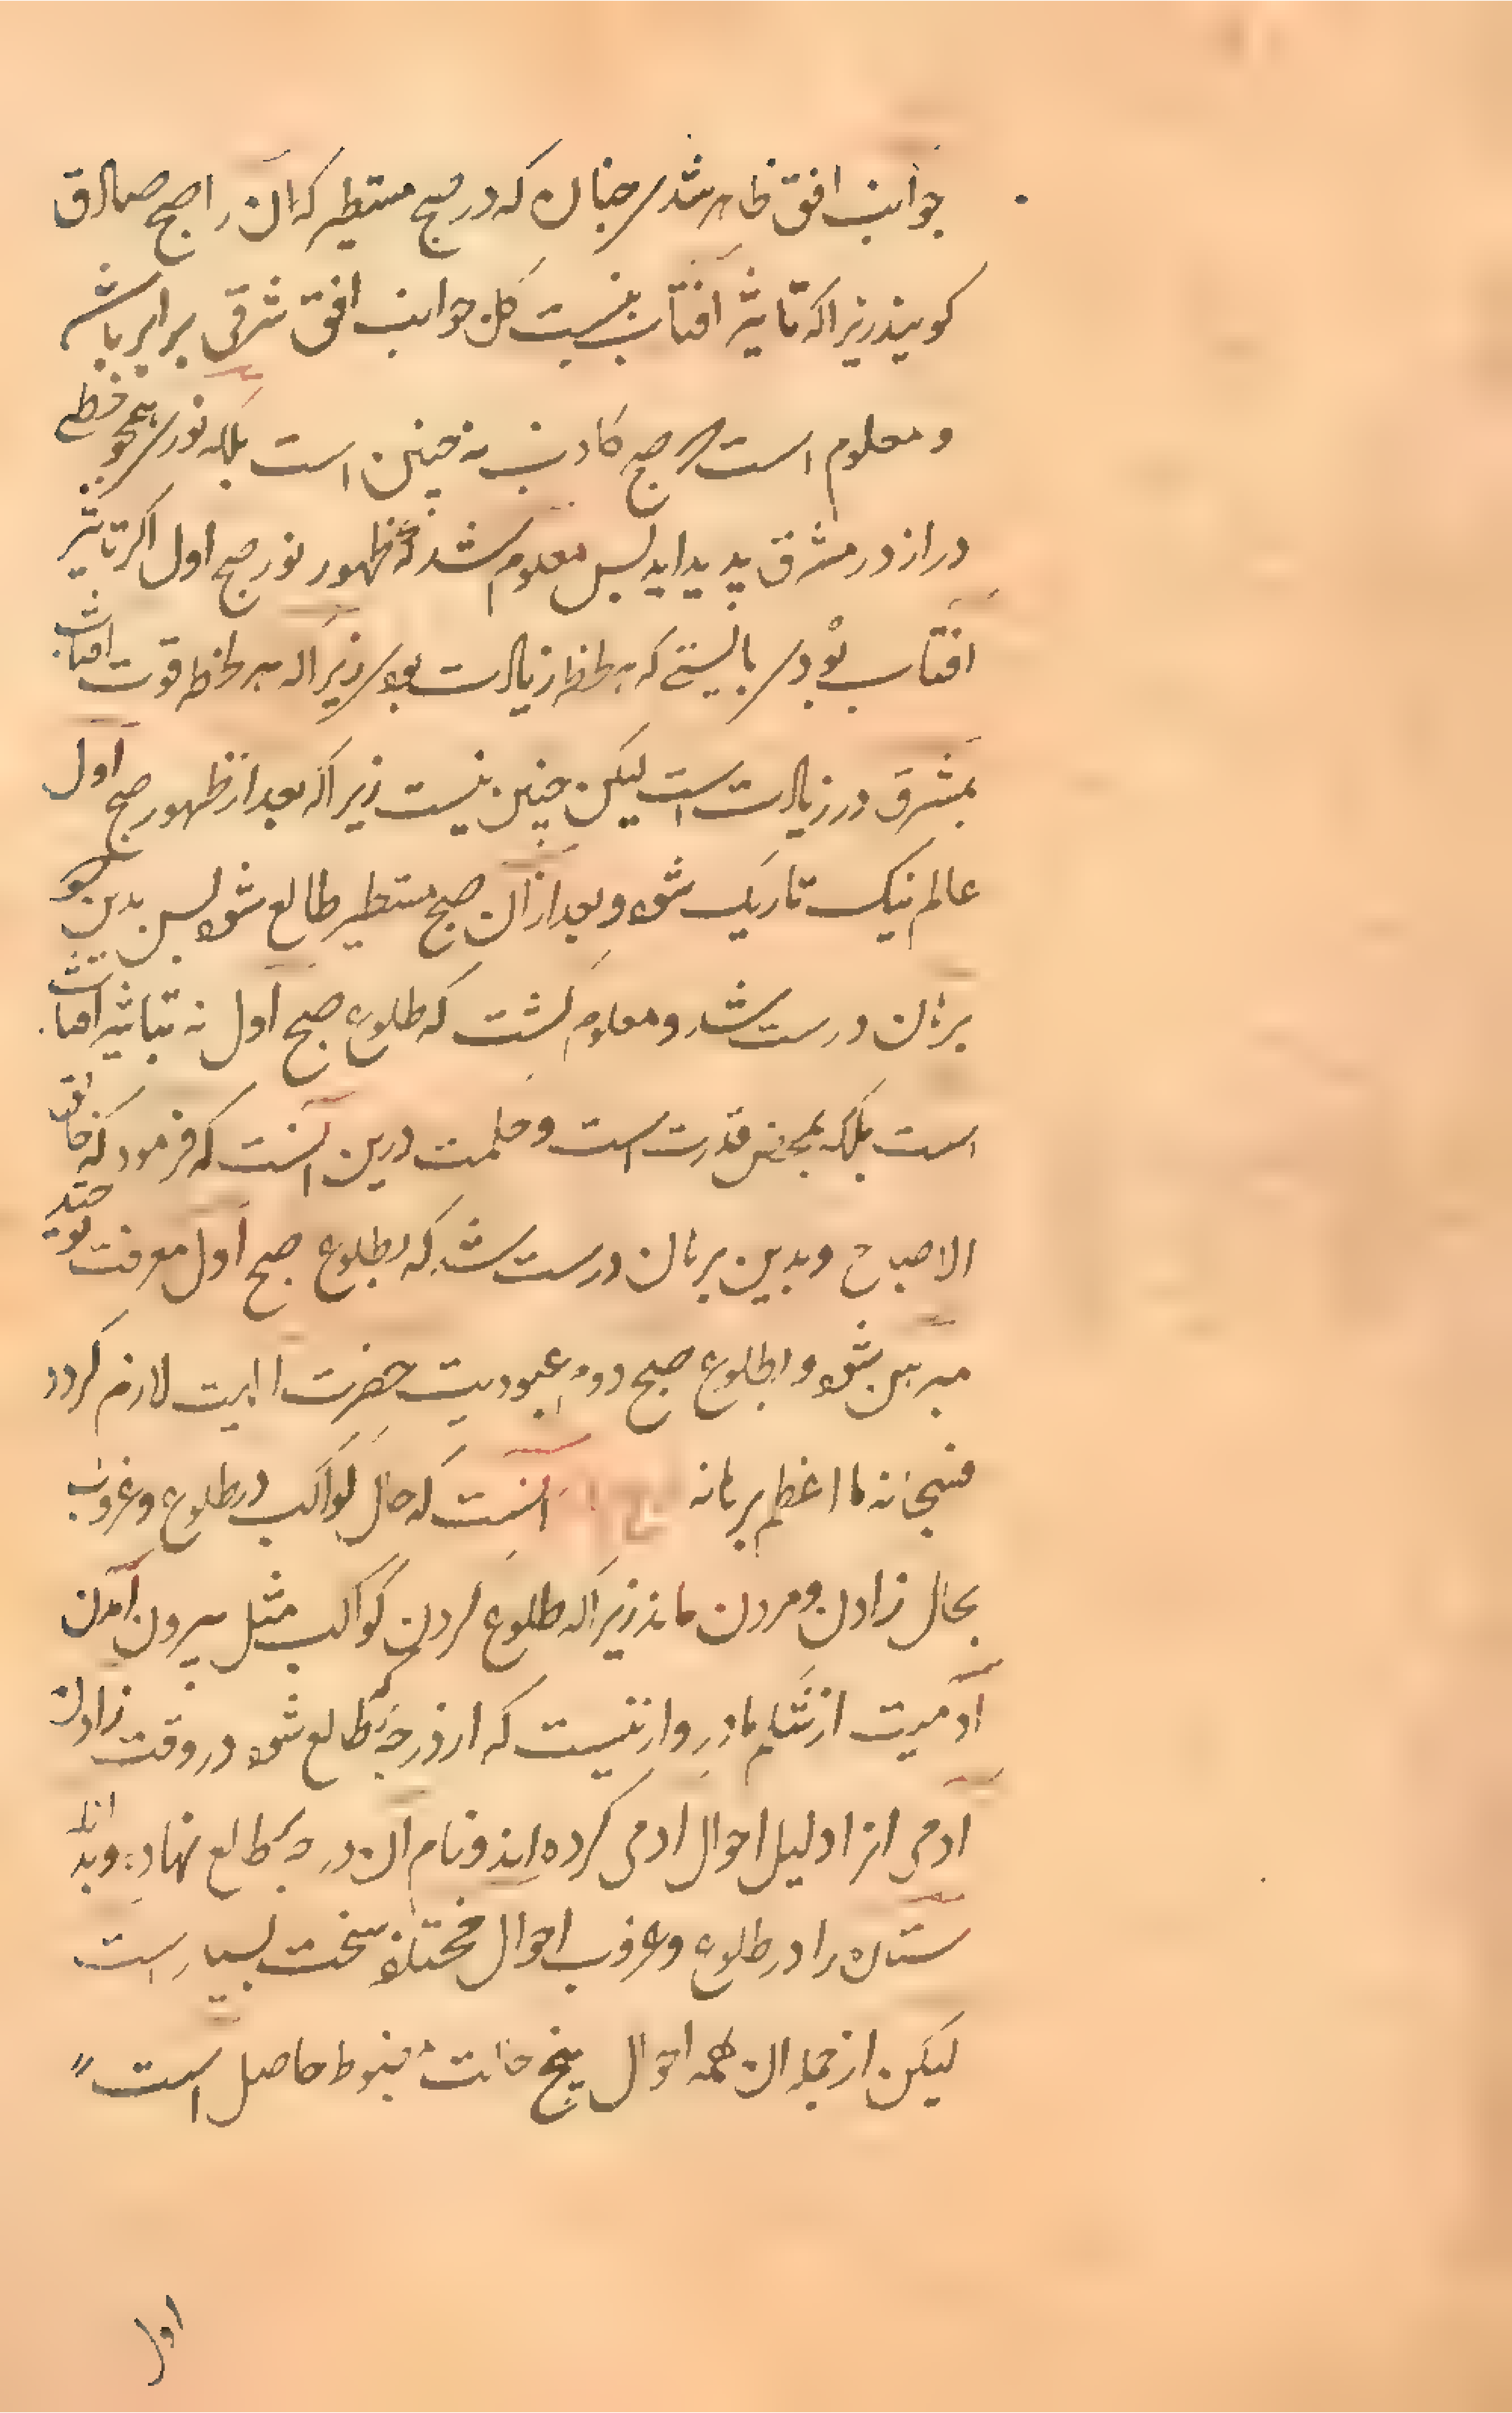 جوانب افق ظاهر شدی چنان که در صبح مستطیر که ان را صبح صادق
کویند زیراکه تاثیر افتاب بنسبت کل جوانب افق شرقی برابر باشد
و معلوم است که صبح کاذب نه چنین است بلکه نوری همچو خطی
دراز در مشرق پدید اید پس معلوم شد که ظهور نور صبح اول اکر تاثیر
افتاب بودی بایستی که هر لحظه زیادت بودی زیراکه هر لحظه قوت افتاب
بمشرق در زیادت است لیکن چنین نیست زیراکه بعد از ظهور صبح اول
عالم نیک تاریک شود و بعد از ان صبح مستطیر طالع شود پس بدین
برهان درست شد و معلوم کشت که طلوع صبح اول نه بتاثیر افتاب
است بلکه بمحض قدرت است و حکمت درین انست که فرمود که فالق
الاصباح و بدین برهان درست شد که بطلوع صبح اول معرفت توحید
مبرهن شود و بطلوع صبح دوم عبودیت حضرت الهیت لازم کردد
فسبحانه ما اعظم برهانه انست که حال کواکب در طلوع و غروب
بحال زادن و مردن ماند زیراکه طلوع کردن کواکب مثل بیرون آمدن
آدمیست از شکم مادر و ازینست که از درجه که طالع شود در وقت زادن
ادمی انرا دلیل احوال ادمی کرده اند و نام ان درجه طالع نهاده اند و بد
ستاره را در طلوع و غروب احوال مختلف سخت بسیار است
لیکن از جمله ان همه احوال پنج حالت مضبوط حاصل است
اول